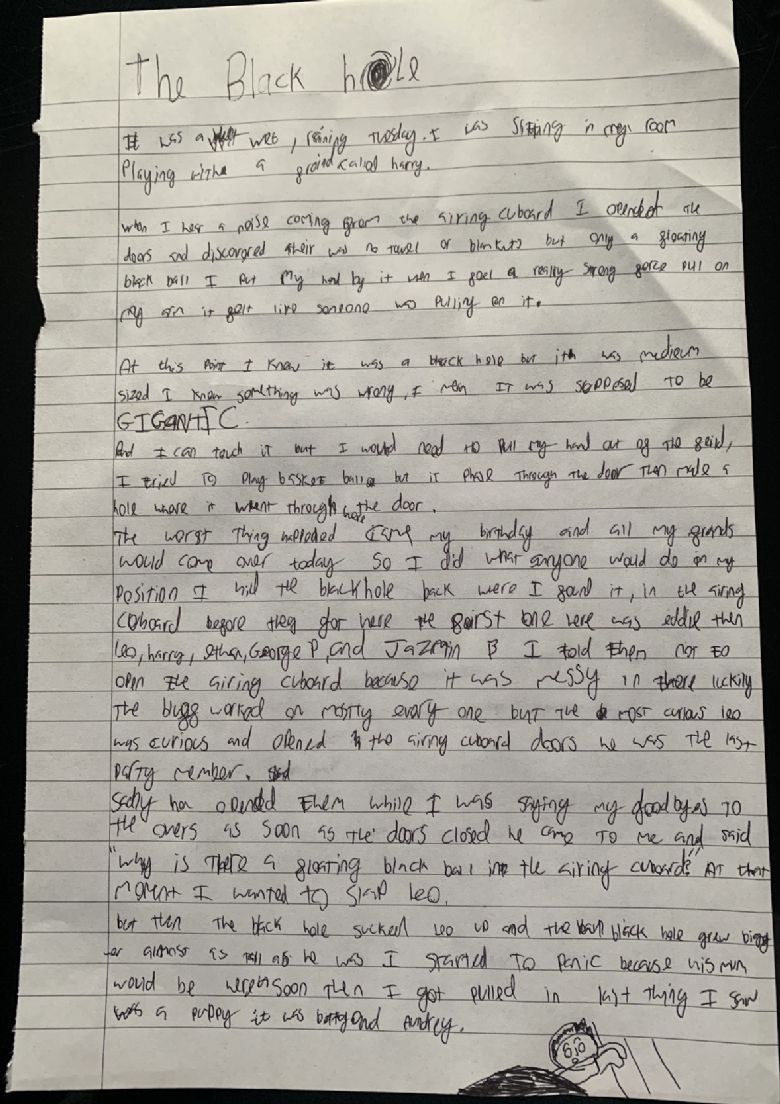 The Black hole
It was a wet, raining Tuesday. I was Sitting in my room
Playing withe a called harry.
when I hear a noise coming from the airing cuboard I opended the
doors and discovered their was no towel or blankets but only a floating
black ball I Put My hand by it when I feel a really strong force pull on
my arm it felt like someone was Pulling on it.
At this Point I knew it was a black hole but it was medium
sized I knew something was wrong, I mean IT was supposed to be
GIGANTIC.
And I can touch it but I would need to Pull my hand out of the feild,
I tried To Play basket ball but it Phase Through the door Then made a
hole where it whent through the door.
The worst Thing happened Came my birthday and all my frends
would come over today So I did what anyone would do in my
Position I hid the blackhole back were I found it, in the airing
Cuboard before they got here the first one here was eddie then
Leo, harry, ethan, George P, and Jazmin B I told them not to
open the airing cuboard because it was messy in there luckily
the worked on mostly every one but The most curious leo
was curious and opened the airing cuboard doors he was The last
Party member.
Sadly he opened Them while I was saying my goodbyes to
the overs as soon as the doors closed he came To me and said
"why is There a floating black ball in the airing cuboard?" At that
Moment I wanted to Slap Leo.
but then The black hole sucked Leo up and the black hole grew bigg
er almost as tall as he was I started To Panic because his mum
would be here soon Then I got pulled in last Thing I saw
was a puppy it was and